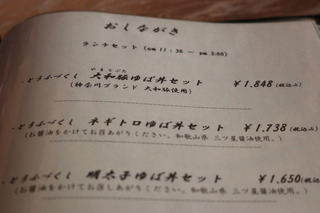 おしながき
ランチセット (AM 11:30 ~ PM 3:00)
・とうふづくし 大和豚ゆば丼セット ¥1,848 (税込み)
やまとぶた
(神奈川ブランド 大和豚使用。)
・とうふづくし ネギトロゆば丼セット ¥1,738 (税込み)
(お醤油をかけてお召あがりください。和歌山県 三ツ星醤油使用。)
・とうふづくし 明太子ゆば丼セット ¥1,650 (税込み)
(お醤油をかけてお召しあがりください。和歌山県 三ツ星醤油使用。)